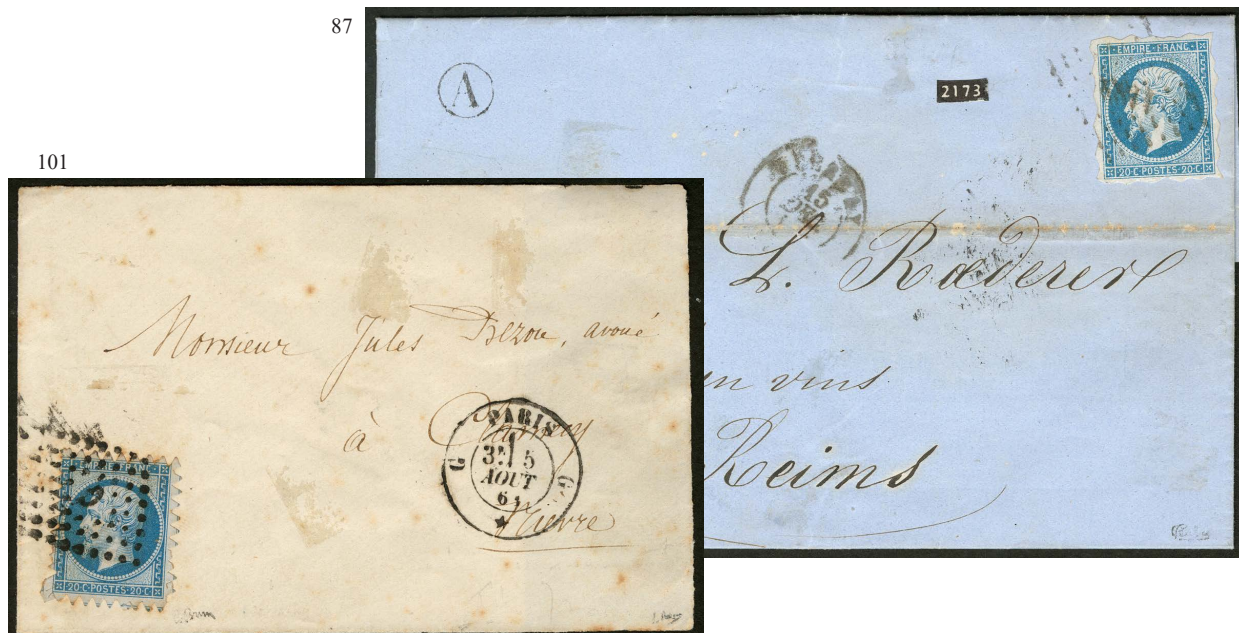 87
A
2173
EMPIRE·FRANC·
20·C·POSTES·20·C
15
L. Rœderer
en vins
Reims
101
Monsieur Jules Bezou, avoué
à Clamecy
Nievre
PARIS
3E 5
AOUT
61
G G
EMPIRE·FRANC·
20·C·POSTES·20·C